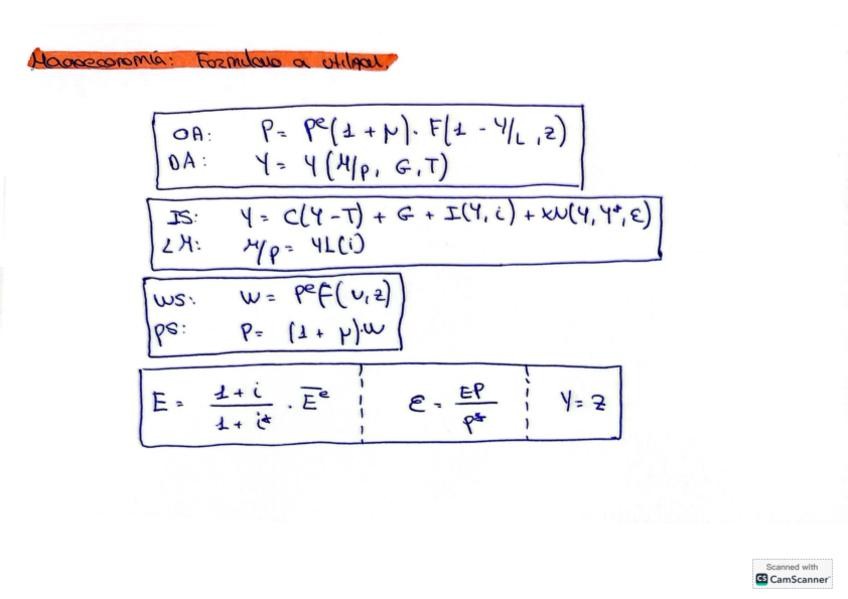 Macroeconomía: Formulario a utilizar.
OA: P = Pᵉ(1 + μ) · F(1 - Y/L, z)
DA: Y = Y(M/P, G, T)
IS: Y = C(Y - T) + G + I(Y, i) + XN(Y, Y*, ε)
LM: M/P = YL(i)
WS: W = PᵉF(u, z)
PS: P = (1 + μ)·W
E = (1 + i)/(1 + i*) · E̅ᵉ ε = EP/P* Y = Z
Scanned with
CS CamScanner